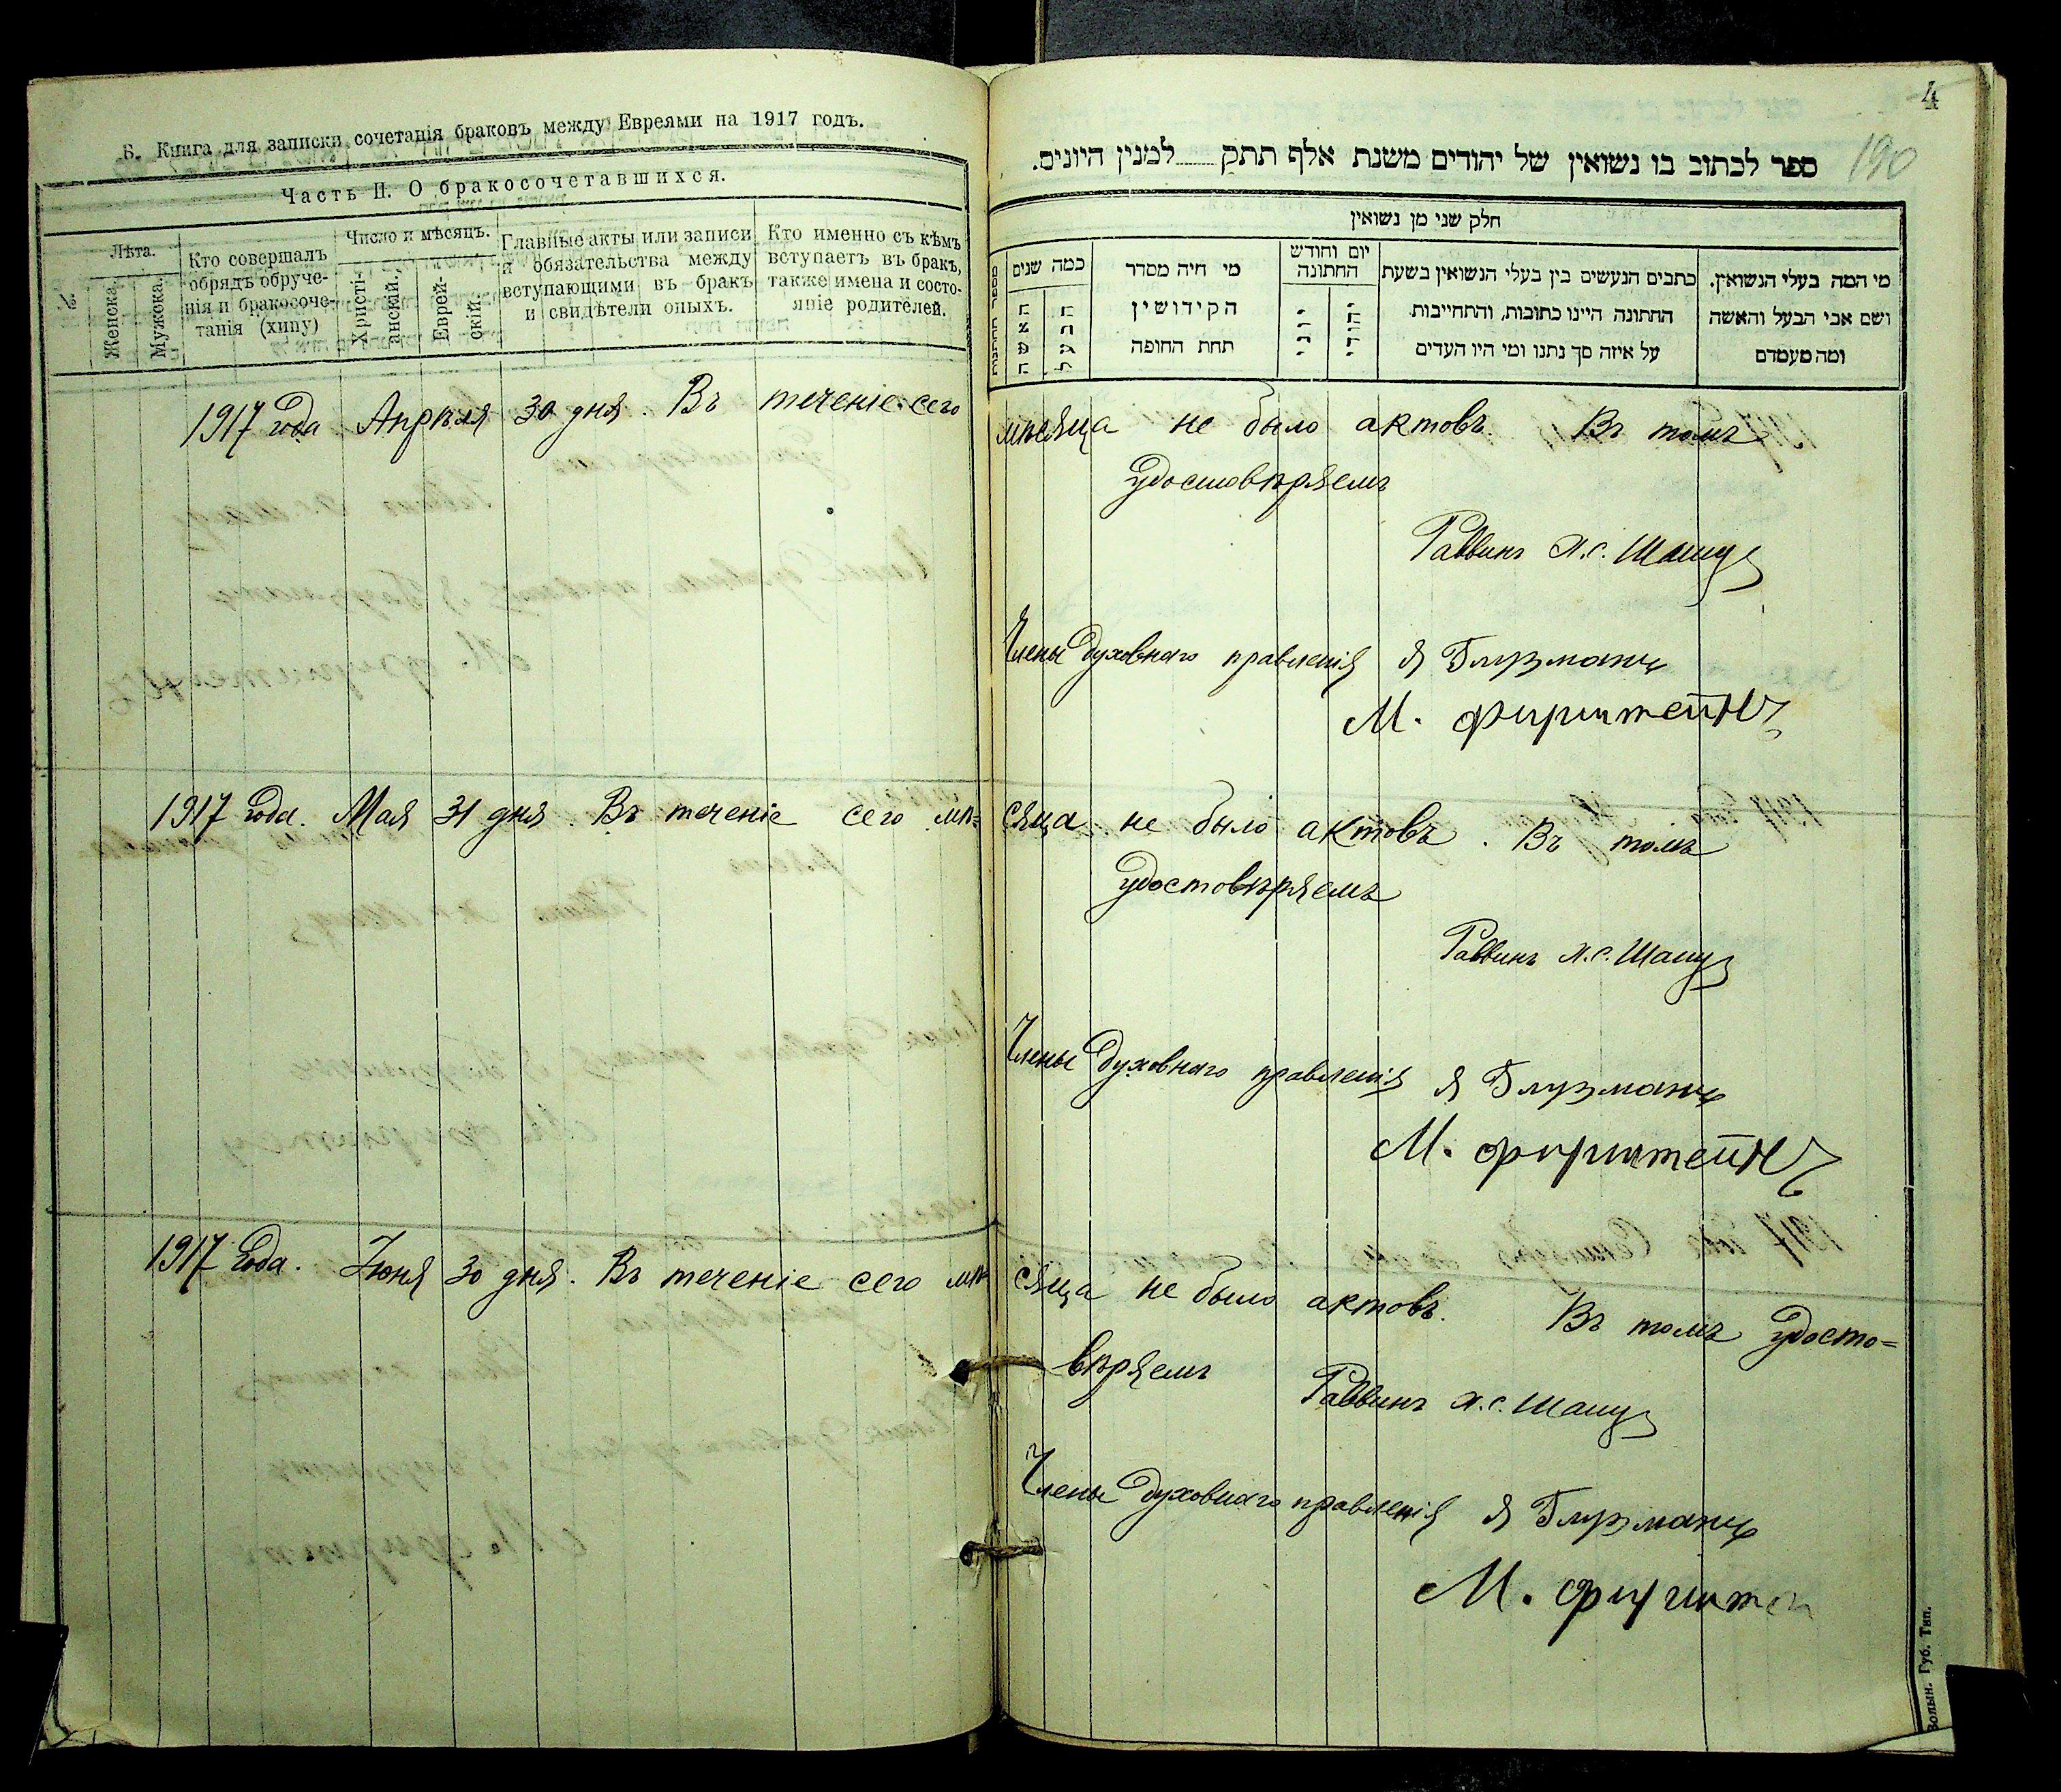 Б. Книга для записки сочетанія браковъ между Евреями на 1917 годъ.
Часть II. О бракосочетавшихся.
№.
Лѣта.
Женска.
Мужска.
Кто совершалъ
обрядъ обруче-
нія и бракосоче-
танія (хипу)
Число и мѣсяцъ.
Христі-
анскій.
Еврей-
скій.
Главные акты или записи
и обязательства между
вступающими въ бракъ
и свидѣтели оныхъ.
Кто именно съ кѣмъ
вступаетъ въ бракъ,
также имена и состо-
яніе родителей.
4
190
ספר לכתוב בו נשואין של יהודים משנת אלף תתק למנין היונים.
חלק שני מן נשואין
מי המה בעלי הנשואין.
ושם אבי הבעל והאשה
ומה מעמדם
כתבים הנעשים בין בעלי הנשואין בשעת
החתונה היינו כתובות, והתחייבות
על איזה סך נתנו ומי היו העדים
יום וחודש
החתונה
יהודי
יוני
מי היה מסדר
הקידושין
תחת החופה
כמה שנים
הבעל
האשה
מספר החתונות
1917 года Апрѣля 30 дня. Въ теченіе сего мѣсяца не было актовъ. Въ томъ
удостовѣряемъ
Раввинъ Х.С. Шапиръ
Члены Духовнаго правленія Я Глузманъ
М. Фирштейнъ
1917 года. Мая 31 дня. Въ теченіе сего мѣ=сяца не было актовъ. Въ томъ
удостовѣряемъ
Раввинъ Х.С.
Члены Духовнаго правленія Я Глузманъ
М. Фирштейнъ
1917 года. Іюня 30 дня. Въ теченіе сего мѣсяца не было актовъ. Въ томъ удосто=
вѣряемъ Раввинъ Х.С.
Члены Духовнаго правленія Я Глузманъ
М.
Волын. Губ. Тип.